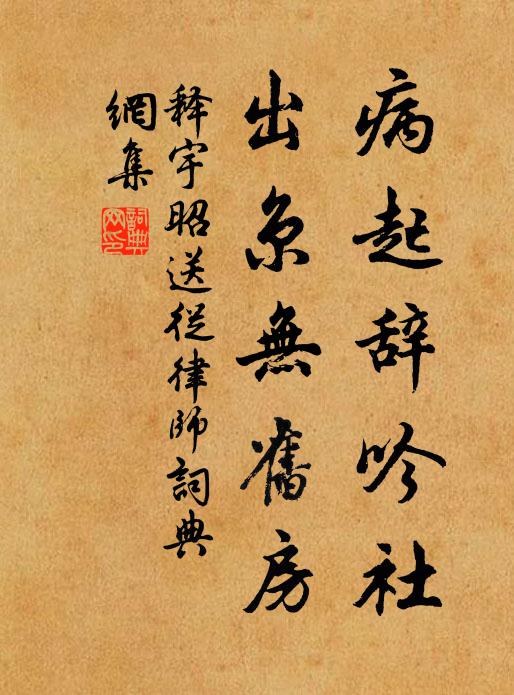 病起辞吟社
出京無舊房
释宇昭送從律師詞典
網集
詞典網印